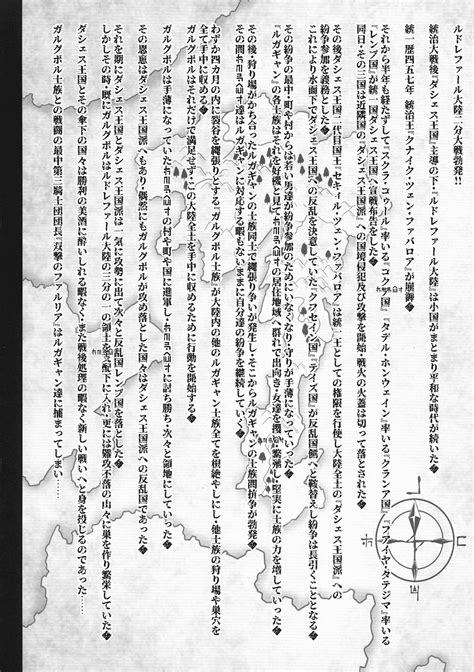 ルドレファール大陸二分大戦勃発!!
統治大戦後『ダシェス王国』主導の下、『ルドレファール大陸』は小国がまとまり平和な時代が続いた
統一歴四五七年 統治王『クナイク・ツェン・ファバロア』が崩御
それから半年も経たずして『スクラ・ゴゥール』率いる『コクー国』『タデル・ホンウェイン』率いる『クランア国』『ファイヤ・タテジマ』率いる
『レンブ国』が統一国『ダシェス王国』へ宣戦布告をした
同日、その三国は近隣国の『ダシェス王国派』への国境侵犯及び攻撃を開始、戦火の火蓋は切って落とされた
その後ダシェス王国二代目国王『セキイル・ツェン・ファバロア』は統一王としての権限を行使し大陸全土の『ダシェス王国派』への
紛争参加を義務とした
これにより水面下でダシェス王国への反乱を決意していた『クフセイン国』『テイズ国』が反乱国側へと鞍替えし紛争は長引くこととなる
その紛争の最中、町や村からは若い男達が紛争参加のためにいなくなり守りが手薄になっていった
『ルガギャン』の各士族はそれを好機と見て
の居住地域へ群れで出向き、女達を攫って繁殖し、堅実に士族の力を増していった
その後、狩り場がかち合ったルガギャンの士族同士で縄張り争いが発生し、そこからルガギャンの士族間抗争が勃発
その間
達はルガギャンに対応する暇もないままに自分達の紛争を継続していく
わずか四カ月の内に裂谷を縄張りとする『ガルグボル士族』が大陸内の他のルガギャン士族全てを根絶やしにし、他士族の狩り場や巣穴を
全て手中に収める
ガルグボルはそれだけで満足せず、この大陸全土を手中に収めるために行動を開始する
ガルグボルは手薄になっていた
の村や町や国に進軍し、
に討ち勝ち、次々と領地にしていった
その恩恵はダシェス王国派へもあり、偶然にもガルグボルが攻め落とした国々はダシェス王国派への反乱国であった
それを期にダシェス王国とダシェス王国派は一気に攻勢に出て次々と反乱国レンブ国を落とした
しかしその時、既にガルグボルはルドレファール大陸の三分の一の領土を支配下に入れ、更には難攻不落の山々に巣を作り繁栄していた
ダシェス王国とその傘下の国々は勝利の美酒に酔いしれる暇もなく、また戦後処理の暇なく、新しい戦いへと身を投じるのであった
ガルグボル士族との戦闘の最中第三騎士団団長『双撃のファルリア』はルガギャン達に捕まってしまい……